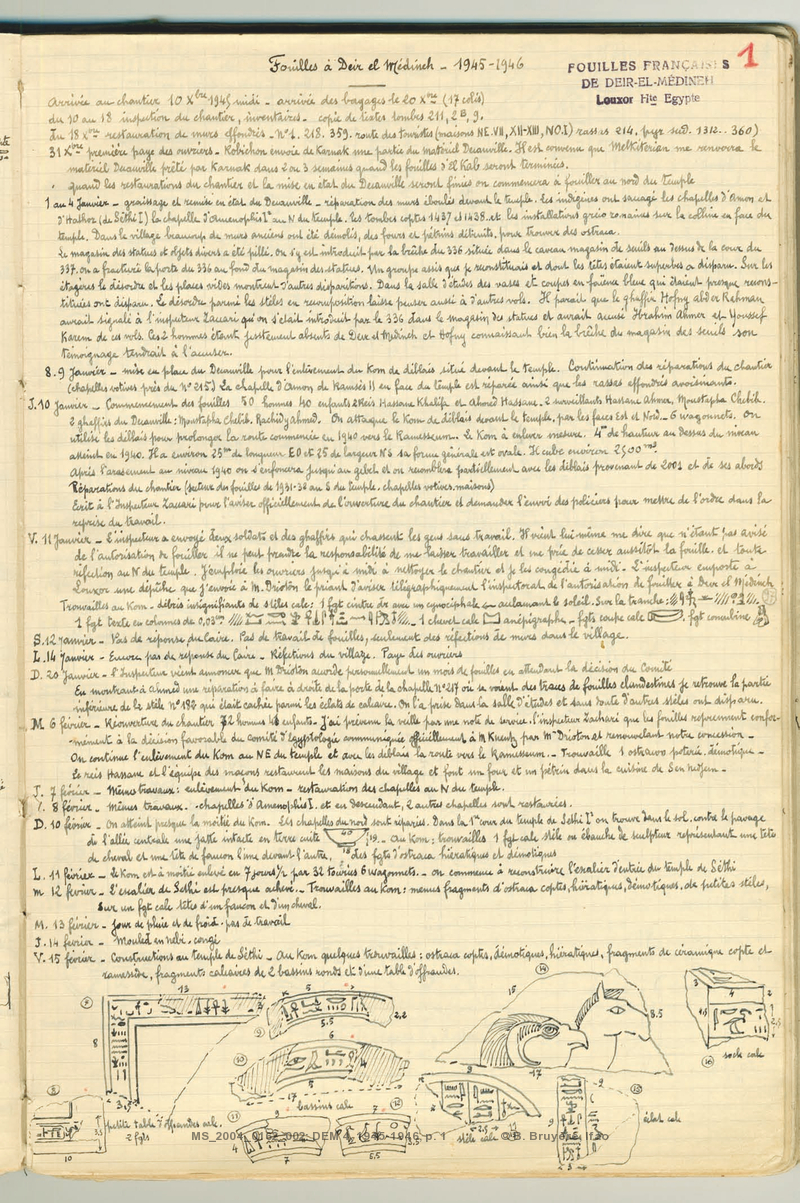 Fouilles à Deir el Médineh - 1945-1946
FOUILLES FRANÇAISES
DE DEIR-EL-MÉDINEH
Louxor Hte Egypte
1
Arrivée au chantier 10 Xbre 1945 midi - arrivée des bagages le 20 Xbre (17 colis)
du 10 au 18 inspection du chantier, inventaires. copie de textes tombes 211, 2B, 9.
Du 18 Xbre restauration de murs effondrés - No 1. 218. 359. route des touristes (maisons NE.VII, XII-XIII, NO.I) 214, sud. 1312.. 360)
31 Xbre première paye des ouvriers - Robichon envoie de Karnak une partie du matériel Decauville. Il est convenu que Melkiterian me renverra le
matériel Decauville prêté par Karnak dans 2 ou 3 semaines quand les fouilles d'El Kab seront terminées.
quand les restaurations du chantier et la mise en état du Decauville seront finies on commencera à fouiller au nord du temple
1 au 4 Janvier - graissage et remise en état du Decauville - réparation des murs éboulés devant le temple. Les indigènes ont saccagé les chapelles d'Amon et
d'Hathor (de Séthi I) la chapelle d'Amenophis Ier au N du temple. les tombes coptes 1437 et 1438 et les installations gréco romaines sur la colline en face du
temple. Dans le village beaucoup de murs anciens ont été démolis, des fours et pétrins détruits, pour trouver des ostraca.
Le magasin des statues et objets divers a été pillé. On s'y est introduit par la brêche du 336 située dans le caveau magasin de seuils au dessus de la cour du
337. on a fracturé la porte du 336 au fond du magasin des statues. Un groupe assis que je reconstituais et dont les têtes étaient superbes a disparu. Sur les
étagères le désordre et les places vides montrent d'autres disparitions. Dans la salle d'études des vases et coupes en faïence bleue qui étaient presque recons-
titués ont disparu. Le désordre parmi les stèles en recomposition laisse penser aussi à d'autres vols. Il parait que le ghaffir Hofny abd er Rehman
aurait signalé à l'inspecteur Zaccari qu'on s'était introduit par le 336 dans le magasin des statues et aurait accusé Ibrahim Ahmer et Youssef
Karem de ces vols. Ces 2 hommes étant justement absents de Deir el Médineh et Hofny connaissant bien la brêche du magasin des seuils son
témoignage tendrait à l'accuser.
8.9 Janvier - mise en place du Decauville pour l'enlèvement du Kom de déblais situé devant le temple. Continuation des réparations du chantier
(chapelles votives près du No 215) La chapelle d'Amon de Ramsès II en face du temple est réparée ainsi que les rasses effondrés avoisinants.
J. 10 Janvier - Commencement des fouilles 50 hommes 40 enfants 2 Reis Hassane Khalifa et Ahmed Hassane - 2 surveillants Hassane Ahmer, Moustapha Chebib.
2 ghaffirs du Decauville: Moustapha Chebib. Rachidy Ahmed. On attaque le Kom de déblais devant le temple, par les faces Est et Nord - 6 wagonnets. On
utilise les déblais pour prolonger la route commencée en 1940 vers le Ramesseum. Le Kom à enlever mesure 4m de hauteur au dessus du niveau
atteint en 1940. Il a environ 25m de longueur EO et 25 de largeur NS sa forme générale est ovale. Il cube environ 2500 m3
Après l'arasement au niveau 1940 on s'enfoncera jusqu'au gebel et on remblera partiellement avec les déblais provenant de 2001 et de ses abords
Réparations du chantier (secteur des fouilles de 1931-32 au S du temple. chapelles votives. maisons)
Ecrit à l'Inspecteur Zaccari pour l'aviser officiellement de l'ouverture du chantier et demander l'envoi des policiers pour mettre de l'ordre dans la
reprise du travail.
V. 11 Janvier - L'inspecteur a envoyé deux soldats et des ghaffirs qui chassent les gens sans travail. Il vient lui-même me dire que n'étant pas avisé
de l'autorisation de fouiller il ne peut prendre la responsabilité de me laisser travailler et me prie de cesser aussitôt la fouille. et toute
réfection au N du temple. J'emploie les ouvriers jusqu'à midi à nettoyer le chantier et je les congédie à midi - L'inspecteur emporte à
Louxor une dépêche que j'envoie à M. Drioton le priant d'aviser télégraphiquement l'inspectorat de l'autorisation de fouiller à Deir el Médineh
Trouvailles au Kom - débris insignifiants de stèles calc: 1 fgt cintre dr avec un cynocéphale acclamant le soleil. Sur la tranche:
1 fgt texte en colonnes de 0,03 . 1 chevet calc anépigraphe - fgts coupe calc . fgt concubine
S. 12 Janvier - Pas de réponse du Caire. Pas de travail de fouilles, seulement des réfections de murs dans le village.
L. 14 Janvier - Encore pas de réponse du Caire - Réfections du village. Paye des ouvriers
D. 20 Janvier - l'Inspecteur vient annoncer que M Drioton accorde personnellement un mois de fouilles en attendant la décision du Comité
En montrant à Ahmed une réparation à faire à droite de la porte de la chapelle No 217 où se voient des traces de fouilles clandestines je retrouve la partie
inférieure de la stèle No 192 qui était cachée parmi les éclats de calcaire. On l'a prise dans la salle d'études et sans doute d'autres stèles ont disparu.
M 6 février - Réouverture du chantier 72 hommes 48 enfants. J'ai prévenu la veille par une note de service l'inspecteur Zachari que les fouilles reprennent confor-
mément à la décision favorable du comité d'égyptologie communiquée officiellement à M Kuentz par Mr Drioton et renouvelant notre concession -
On continue l'enlèvement du Kom au NE du temple et avec les déblais la route vers le Ramesseum - Trouvaille 1 ostracon poterie. démotique -
Le reis Hassane et l'équipe des maçons restaurent les maisons du village et font un four et un pétrin dans la cuisine de Sen nedjem -
J. 7 février - Mêmes travaux: enlèvement du Kom - restauration des chapelles au N du temple.
V. 8 février - Mêmes travaux. - chapelles d'Amenophis I. et en descendant, 2 autres chapelles sont restaurées.
D. 10 février - On atteint presque la moitié du Kom. Les chapelles du nord sont réparées. Dans la 1ère cour du temple de Séthi Ier on trouve dans le sol, contre le pavage
de l'allée centrale une jatte intacte en terre cuite 19. - Au Kom: trouvailles 1 fgt calc stèle ou ébauche de sculpteur représentant une tête
de cheval et une tête de faucon l'une devant l'autre, des fgts d'ostraca hiératiques et démotiques
L. 11 février - Le Kom est à moitié enlevé en 7 jours 1/2 par 32 touries 6 wagonnets. - on commence à reconstruire l'escalier d'entrée du temple de Séthi
M 12 février - L'escalier de Séthi est presque achevé - Trouvailles au Kom: menus fragments d'ostraca coptes, hiératiques, démotiques, de petites stèles,
sur un fgt calc têtes d'un faucon et d'un cheval.
M. 13 février - Jour de pluie et de froid - pas de travail
J. 14 février - Mouled en nebi - congé
V. 15 février - Constructions au temple de Séthi - Au Kom quelques trouvailles: ostraca coptes, démotiques, hiératiques, fragments de céramique copte et
ramesside, fragments calcaires de 2 bassins ronds et d'une table d'offrandes.
13
8
3,5
petite table d'offrandes calc.
2 fgts
3,5
10
5
5,5
2,2
9
10
6
4
5
17
bassins calc
11
9
7
12
7
5,5
3,5
14
15
8.5
17
9
stèle calc
2,5
9
2
3
éclat calc
3
4
2
4,5
2,5
16
socle calc
MS_2004_0152_002; DEM 4, 1945-1946, p. 1 © B. Bruyère, Ifao